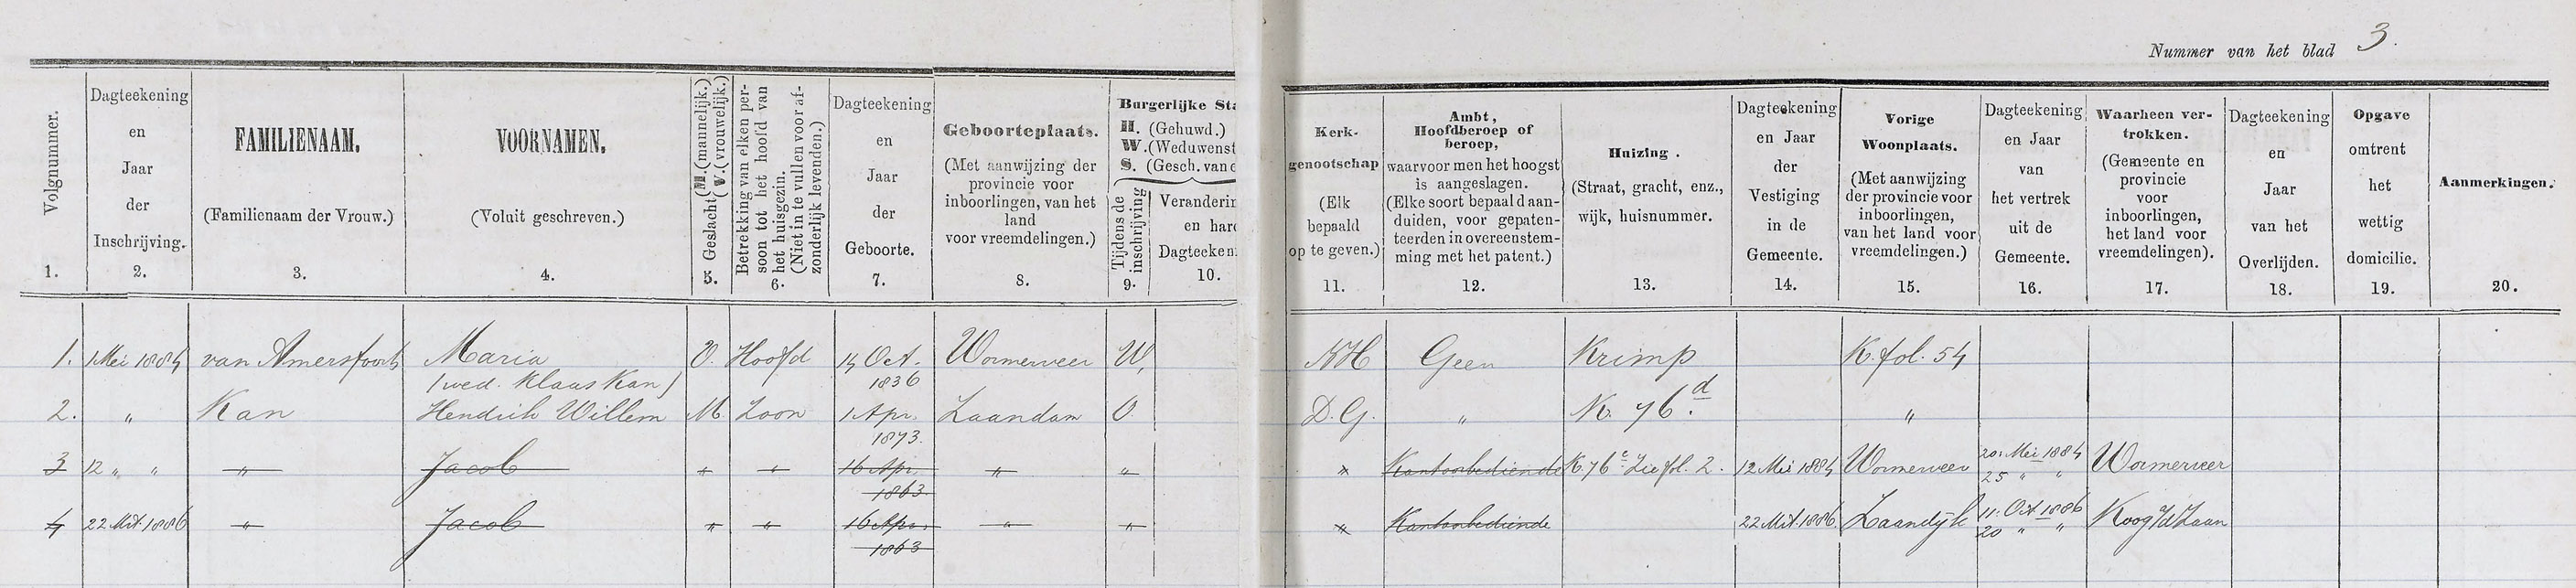 Nummer van het blad 3.
Volgnummer.
1.
Dagteekening
en
Jaar
der
Inschrijving.
2.
FAMILIENAAM.
(Familienaam der Vrouw.)
3.
VOORNAMEN.
(Voluit geschreven.)
4.
Geslacht (M. (mannelijk.)
(V. (vrouwelijk.)
5.
Betrekking van elken per-
soon tot het hoofd van
het huisgezin.
(Niet in te vullen voor af-
zonderlijk levenden.)
6.
Dagteekening
en
Jaar
der
Geboorte.
7.
Geboorteplaats.
(Met aanwijzing der
provincie voor
inboorlingen, van het
land
voor vreemdelingen.)
8.
Burgerlijke Sta
H. (Gehuwd.)
W. (Weduwenst
S. (Gesch. van
Tijdens de
inschrijving
9.
Veranderin
en hare
Dagteeken
10.
Kerk-
genootschap
(Elk
bepaald
op te geven.)
11.
Ambt,
Hoofdberoep of
beroep,
waarvoor men het hoogst
is aangeslagen.
(Elke soort bepaald aan-
duiden, voor gepaten-
teerden in overeenstem-
ming met het patent.)
12.
Huizing.
(Straat, gracht, enz.,
wijk, huisnummer.
13.
Dagteekening
en Jaar
der
Vestiging
in de
Gemeente.
14.
Vorige
Woonplaats.
(Met aanwijzing
der provincie voor
inboorlingen,
van het land voor
vreemdelingen.)
15.
Dagteekening
en Jaar
van
het vertrek
uit de
Gemeente.
16.
Waarheen ver-
trokken.
(Gemeente en
provincie
voor
inboorlingen,
het land voor
vreemdelingen).
17.
Dagteekening
en
Jaar
van het
Overlijden.
18.
Opgave
omtrent
het
wettig
domicilie.
19.
Aanmerkingen.
20.
1. 1 Mei 1884 van Amersfoort Maria V. Hoofd 14 Oct. Wormerveer W, NH Geen Krimp K. fol. 54
(wed. Klaas Kan) 1836
2. " Kan Hendrik Willem M. Zoon 1 Apr. Zaandam O. D.G. " K. 76 d. "
1873.
3 12 " " " Jacob " " 16 Apr. " " " Kantoorbediende K. 76 c. Zie fol. 2. 12 Mei 1884 Wormerveer 20 Mei 1884 Wormerveer
1863. 25 " "
4 22 Mrt. 1886 " Jacob " " 16 Apr. " " " Kantoorbediende 22 Mrt. 1886. Zaandijk 11 Oct 1886 Koog a/d Zaan
1863 20 " "